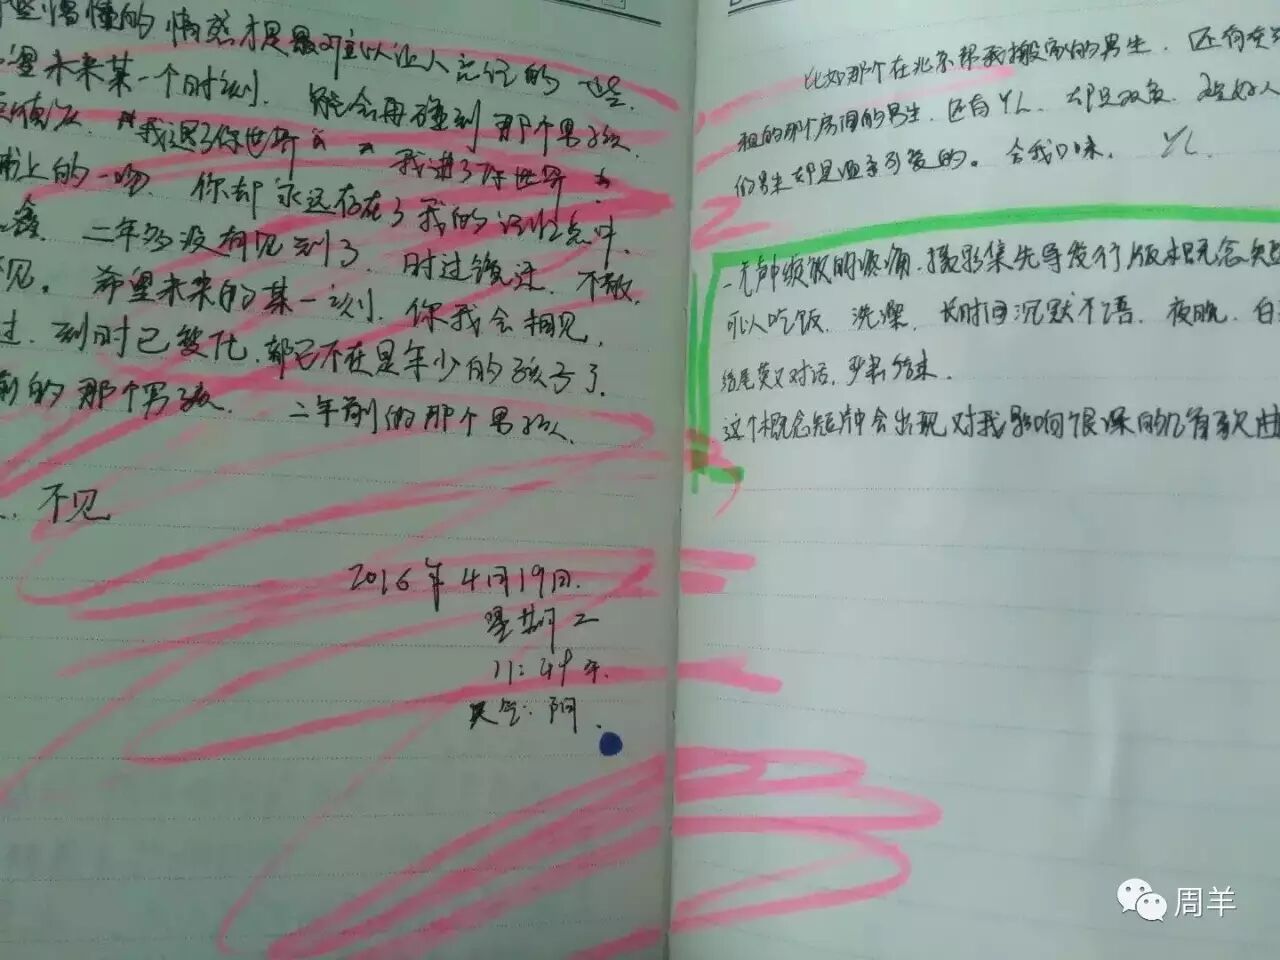 懵懂的情感才是最难以让人忘记的一些
望未来某一个时刻．能会再碰到那个男孩．
我退了你世界 我进了你世界
上的一吻．你却永远存在了我的记忆当中．
二年多没有见到了．时过境迁．不敢．
见。希望未来的某一刻．你我会相见．
过．到时已变化．都已不在是年少的孩子了．
前的那个男孩．二年前的那个男孩．
．．不见
2016年4月19日．
星期二
11：49 午．
天气：阴．
比如那个在北京帮我搬家的男生．还有
租的那个房间的男生．还有YL．却是双
的男生却是还可爱的。合我口味． YL．
—无声缤纷的疼痛．摄影集先导发行版概念短
可以吃饭．洗澡．长时间沉默不语．夜晚．白
结尾莫又对话．严肃结束．
这个概念短片中会出现对我影响很深的几首歌曲
周羊